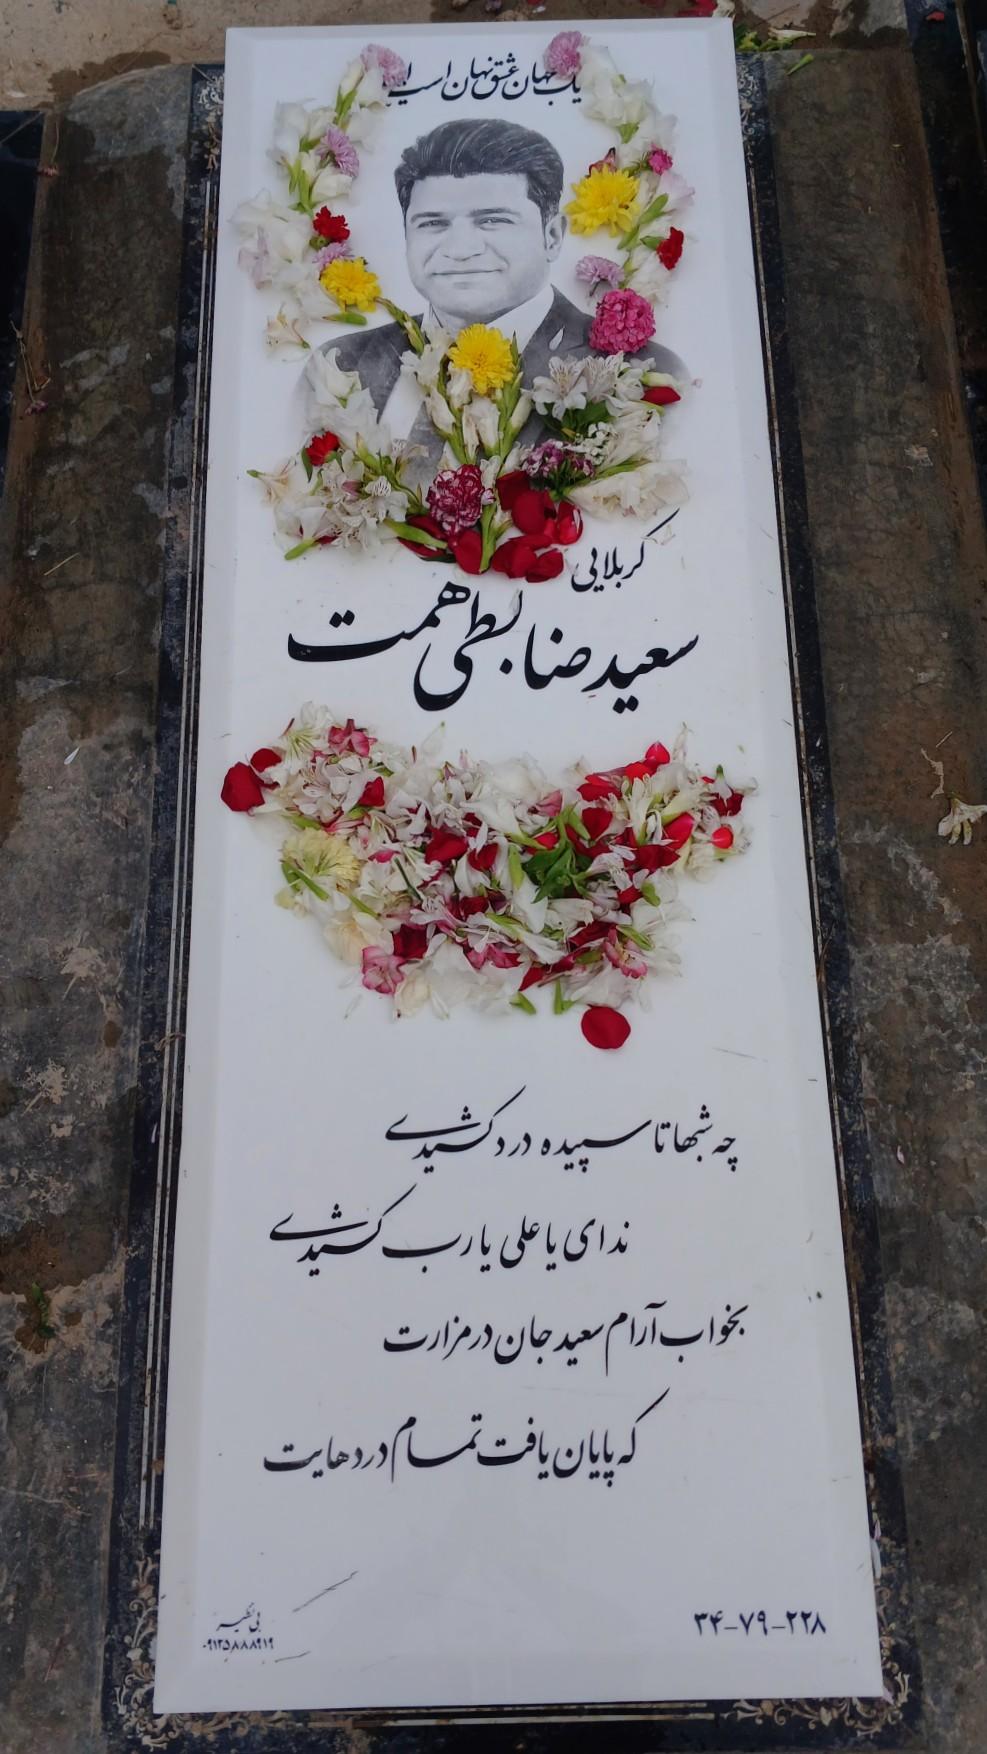 یک جهان عشق نهان است اینجا
کربلایی
سعید ضابطی همت
چه شبها تا سپیده درد کشیدی
ندای یا علی یا رب کشیدی
بخواب آرام سعید جان در مزارت
که پایان یافت تمام دردهایت
۲۲۸-۷۹-۳۴
بی نظیر
۰۹۱۲۵۸۸۸۹۱۹